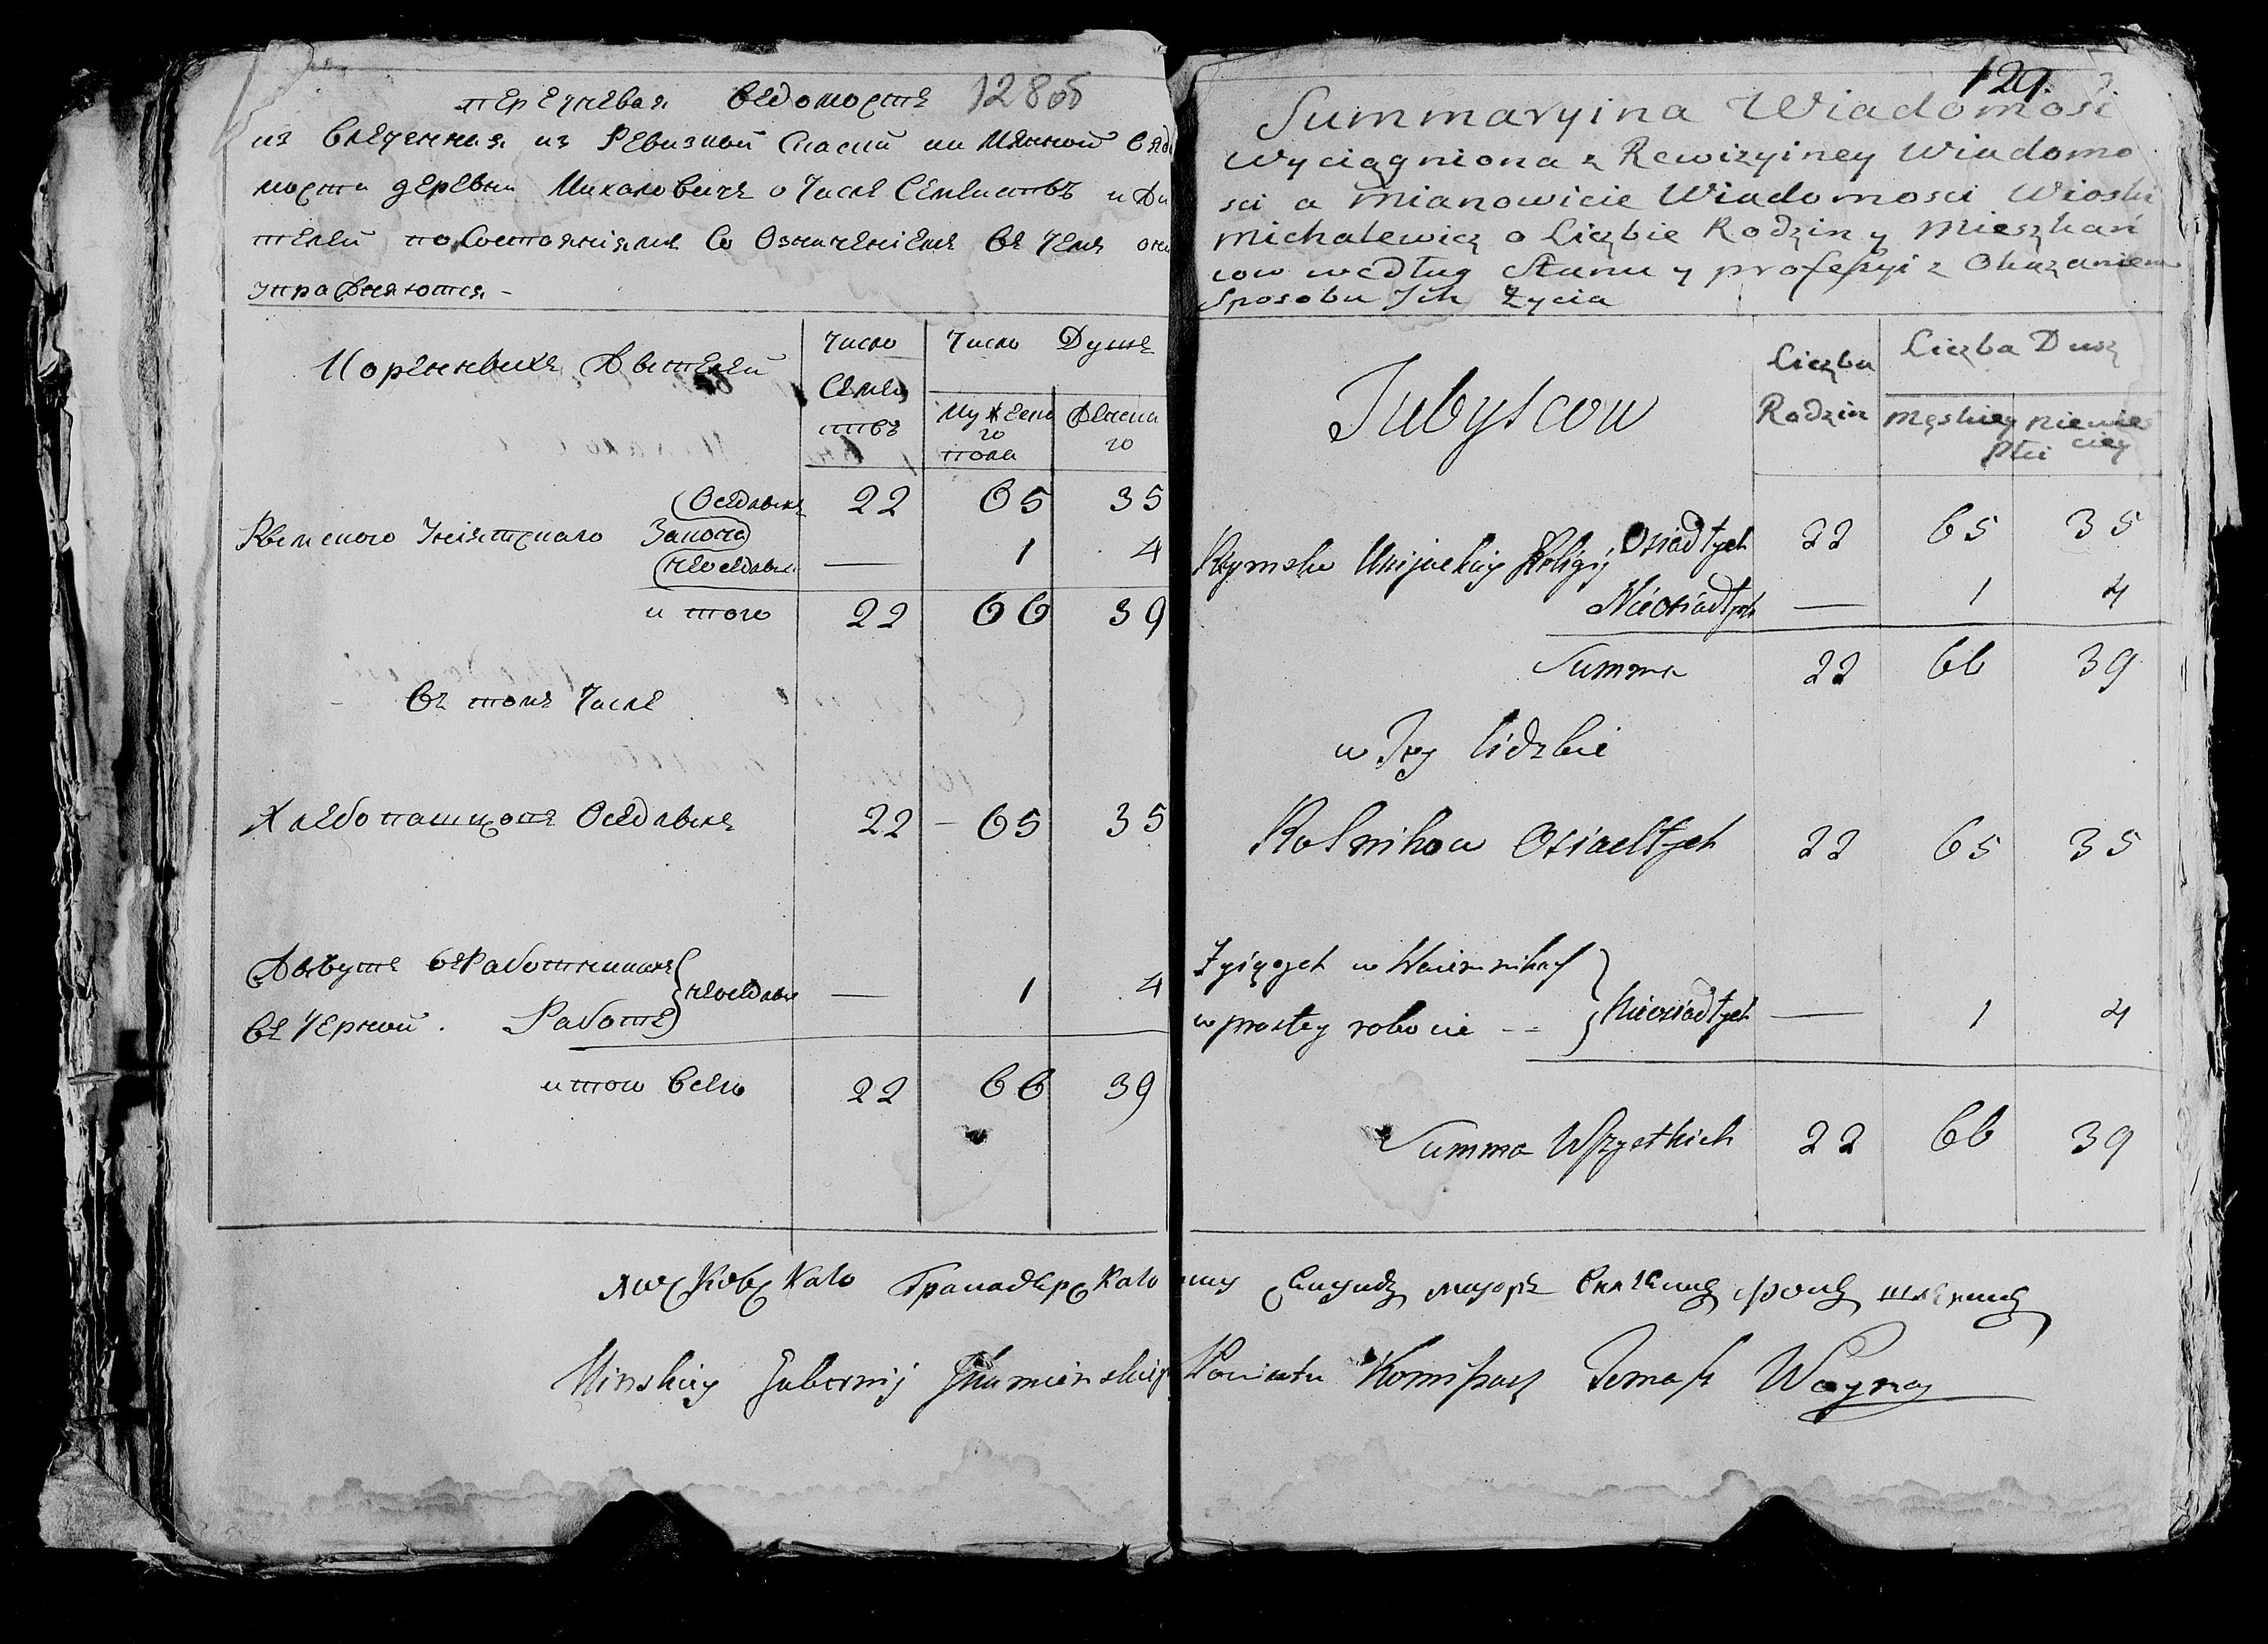 перечневая ведомость 128об
из влеченная из Ревизкой Скаски
мости деревни Михаловичъ о Числе Семействъ и жи
телей по Состоянїямъ Со Означенїемъ въ Чемъ они
упражняются -
Коренныхъ Жителей
Число
Семей
ствъ
Число Душъ
Мужеска
го
пола
Женска
го
Оседлыхъ 22 65 35
Римского Унїятского Закона
Неоседлых — 1 4
и того 22 66 39
въ томъ Числе
Хлебопашцовъ Оседлыхъ 22 65 35
Живутъ въ Работникахъ
неоседлых — 1 4
въ Черной Работе
итого всего 22 66 39
129
Summaryina Wiadomosi
Wyciągniona z Rewizyiney Wiadomo
sci a mianowicie Wiadomosci Wioski
Michalewicz o Liczbie Rodzin y Mieszkań
cow według Stanu y professyi z Okazaniem
Sposobu Ich Zycia
Tubylcow
Liczba
Rodzin
Liczba Dusz
Męskiey niewies
Płci ciey
Rzymsko Unijackiy Religij Osiadłych 22 65 35
Nieosiadłych — 1 4
Summa 22 66 39
w Tey liczbie
Rolnikow Osiadłych 22 65 35
Zyiących w Naiemnikach
Nieosiadłych — 1 4
w prostey robocie --
Summa Wszystkich 22 66 39
московскаго Гранадерскаго маиоръ
Minskiey Gubernij Ihumenskiego Powiatu Komissarz Tomasz Woyna